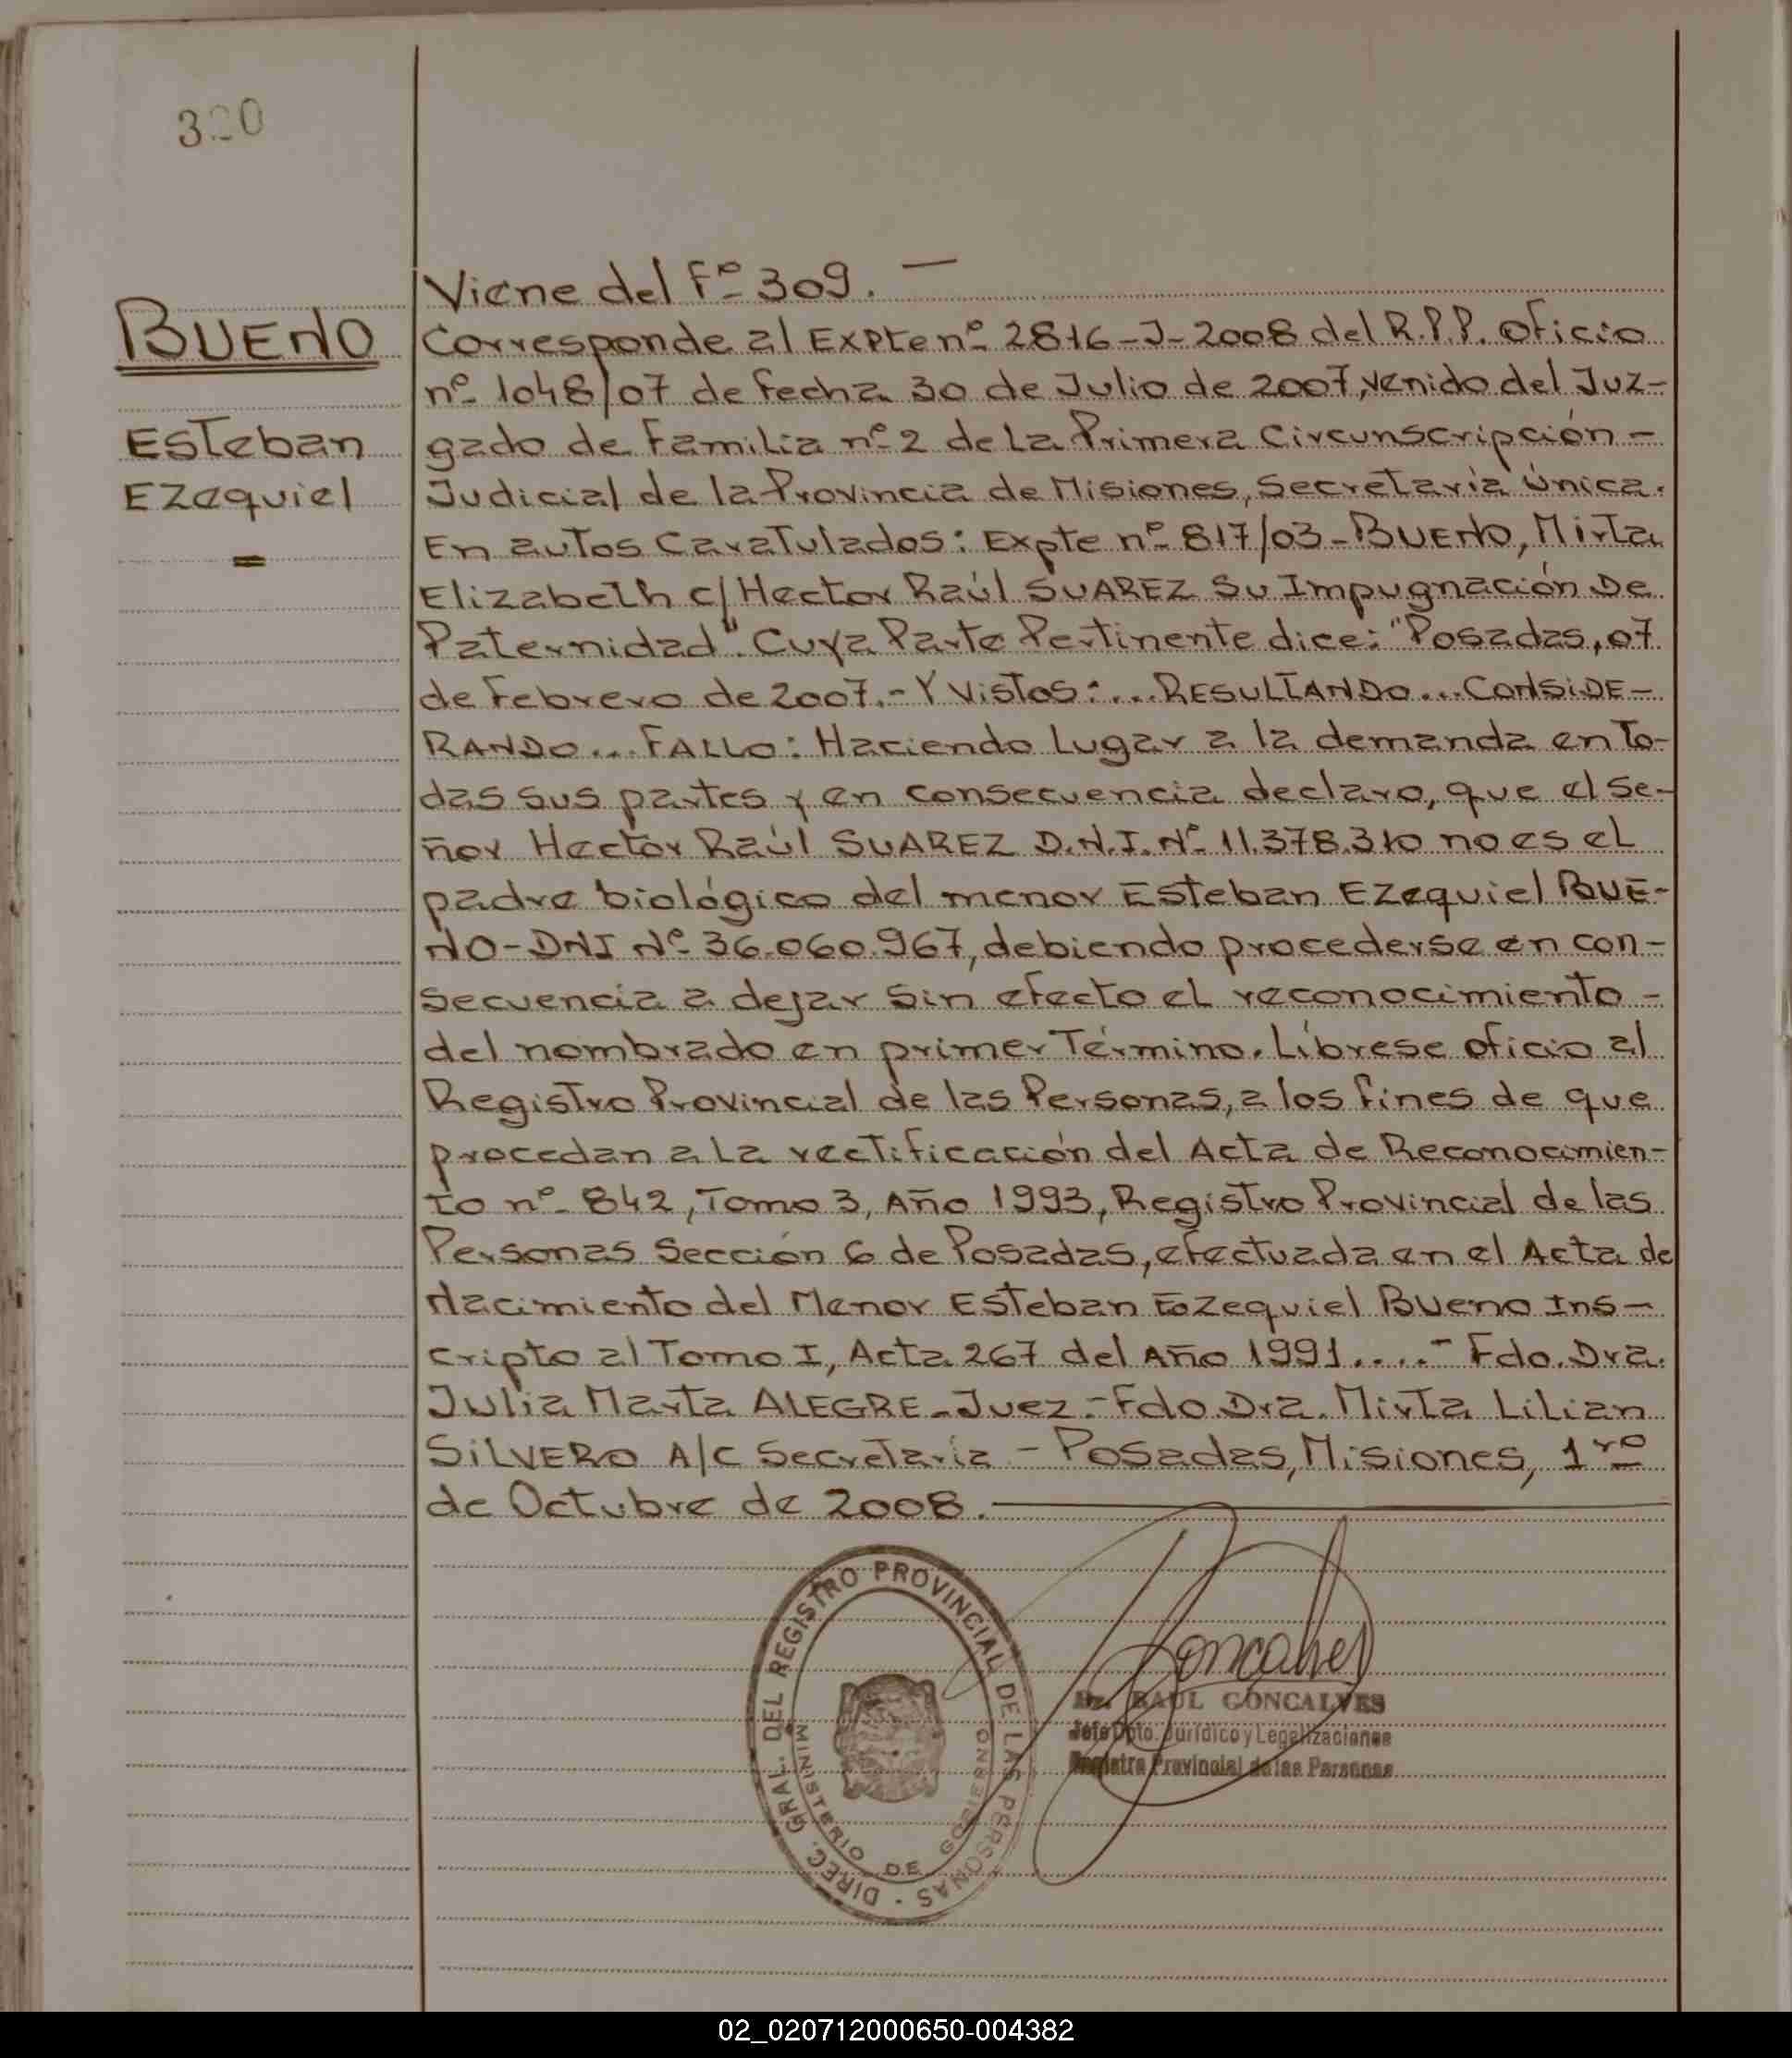 320
BUENO
Esteban
Ezequiel
Viene del Fº 309. —
Corresponde al Expte nº 2816-J-2008 del R.P.P. Oficio
nº 1048/07 de fecha 30 de Julio de 2007, venido del Juz-
gado de Familia nº 2 de La Primera Circunscripción -
Judicial de la Provincia de Misiones, Secretaría Única.
En autos Caratulados: Expte nº 817/03 - BUENO, Mirta
Elizabeth c/ Hector Raúl SUAREZ Su Impugnación De
Paternidad". Cuya Parte Pertinente dice: "Posadas, 07
de Febrero de 2007.- Y Vistos:... RESULTANDO... CONSIDE-
RANDO... FALLO: Haciendo Lugar a la demanda en to-
das sus partes y en consecuencia declaro, que el Se-
ñor Hector Raúl SUAREZ D.N.I. Nº 11.378.310 no es el
padre biológico del menor Esteban Ezequiel BUE-
NO - DNI Nº 36.060.967, debiendo procederse en con-
secuencia a dejar sin efecto el reconocimiento -
del nombrado en primer Término. Líbrese oficio al
Registro Provincial de las Personas, a los fines de que
procedan a La rectificación del Acta de Reconocimien-
to nº 842, Tomo 3, Año 1993, Registro Provincial de las
Personas Sección 6 de Posadas, efectuada en el Acta de
Nacimiento del Menor Esteban Ezequiel Bueno Ins-
cripto al Tomo I, Acta 267 del Año 1991....- Fdo. Dra.
Julia Marta ALEGRE - Juez.- Fdo. Dra. Mirta Lilian
SILVERO A/C Secretaría - Posadas, Misiones, 1ro
de Octubre de 2008.
DIREC. GRAL. DEL REGISTRO PROVINCIAL DE LAS PERSONAS
MINISTERIO DE GOBIERNO
Goncalves
Dr. RAUL GONCALVES
Jefe Dpto. Jurídico y Legalizaciones
Registro Provincial de las Personas
02_020712000650-004382